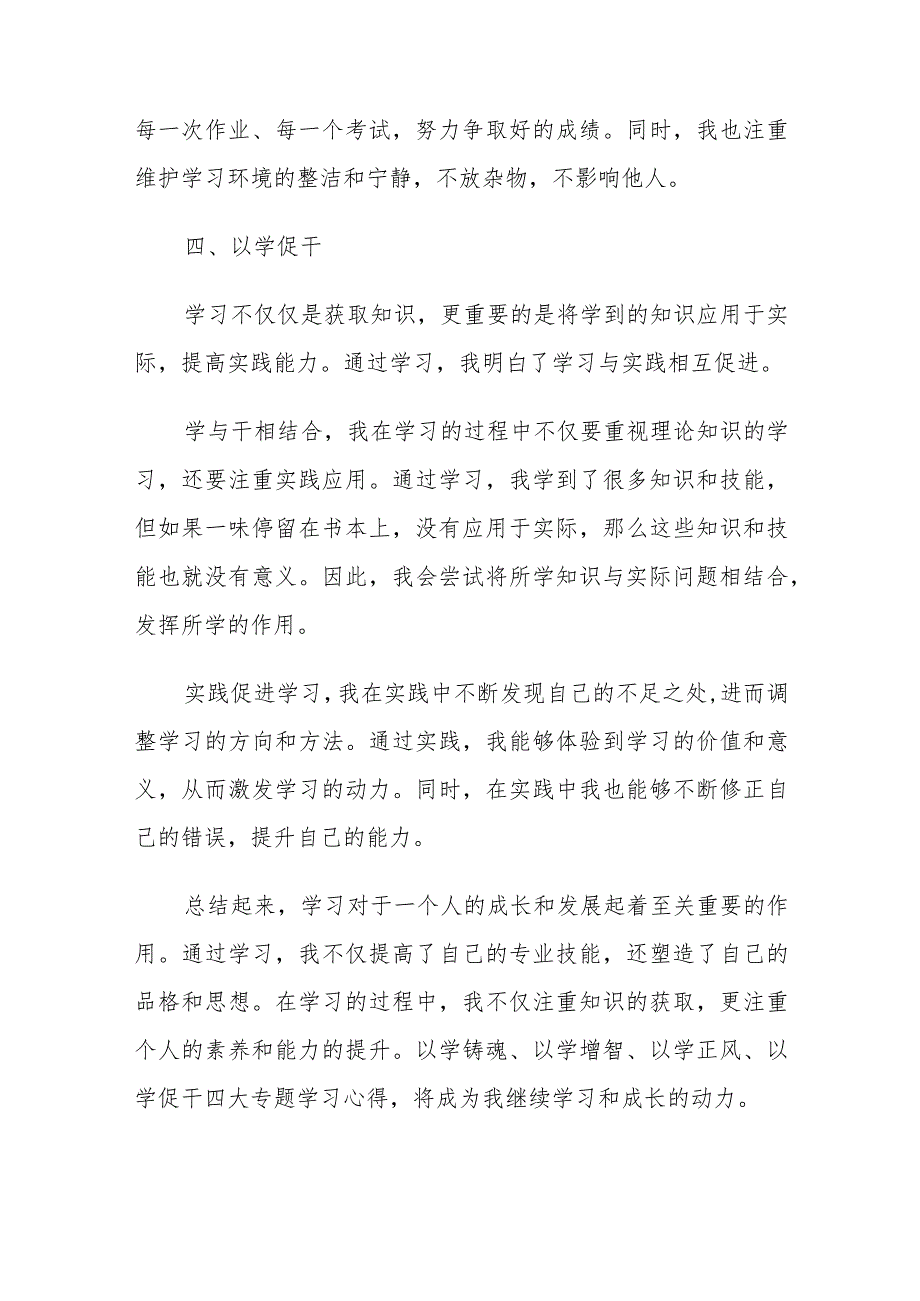 每一次作业、每一个考试，努力争取好的成绩。同时，我也注重
维护学习环境的整洁和宁静，不放杂物，不影响他人。
四、以学促干
学习不仅仅是获取知识，更重要的是将学到的知识应用于实
际，提高实践能力。通过学习，我明白了学习与实践相互促进。
学与干相结合，我在学习的过程中不仅要重视理论知识的学
习，还要注重实践应用。通过学习，我学到了很多知识和技能，
但如果一味停留在书本上，没有应用于实际，那么这些知识和技
能也就没有意义。因此，我会尝试将所学知识与实际问题相结合，
发挥所学的作用。
实践促进学习，我在实践中不断发现自己的不足之处,进而调
整学习的方向和方法。通过实践，我能够体验到学习的价值和意
义，从而激发学习的动力。同时，在实践中我也能够不断修正自
己的错误，提升自己的能力。
总结起来，学习对于一个人的成长和发展起着至关重要的作
用。通过学习，我不仅提高了自己的专业技能，还塑造了自己的
品格和思想。在学习的过程中，我不仅注重知识的获取，更注重
个人的素养和能力的提升。以学铸魂、以学增智、以学正风、以
学促干四大专题学习心得，将成为我继续学习和成长的动力。